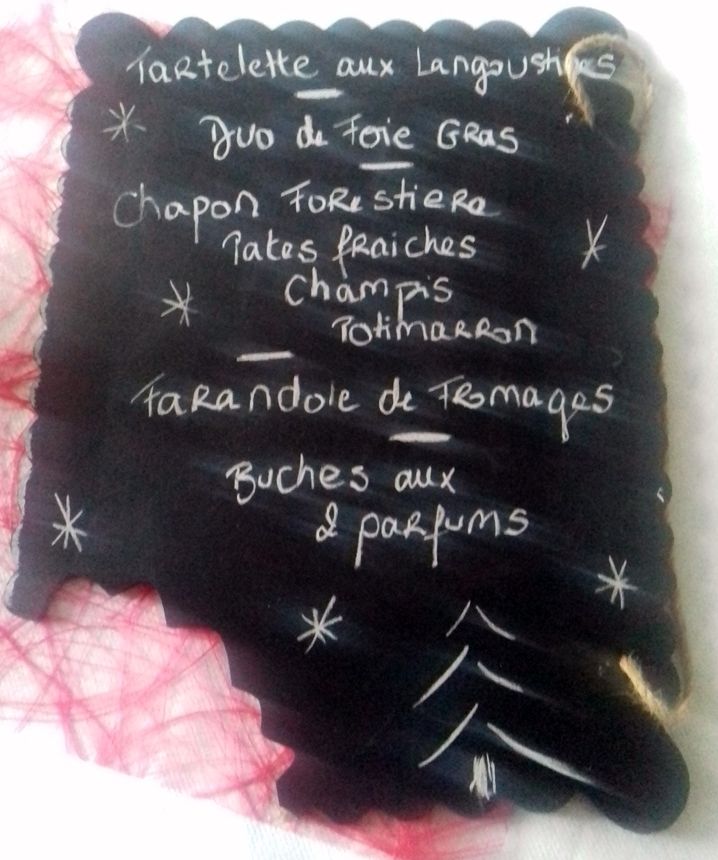 Tartelette aux Langoustines
Duo de Foie Gras
Chapon Forestiere
Pates fraiches
Champis
Potimarron
Farandole de Fromages
Buches aux
2 parfums